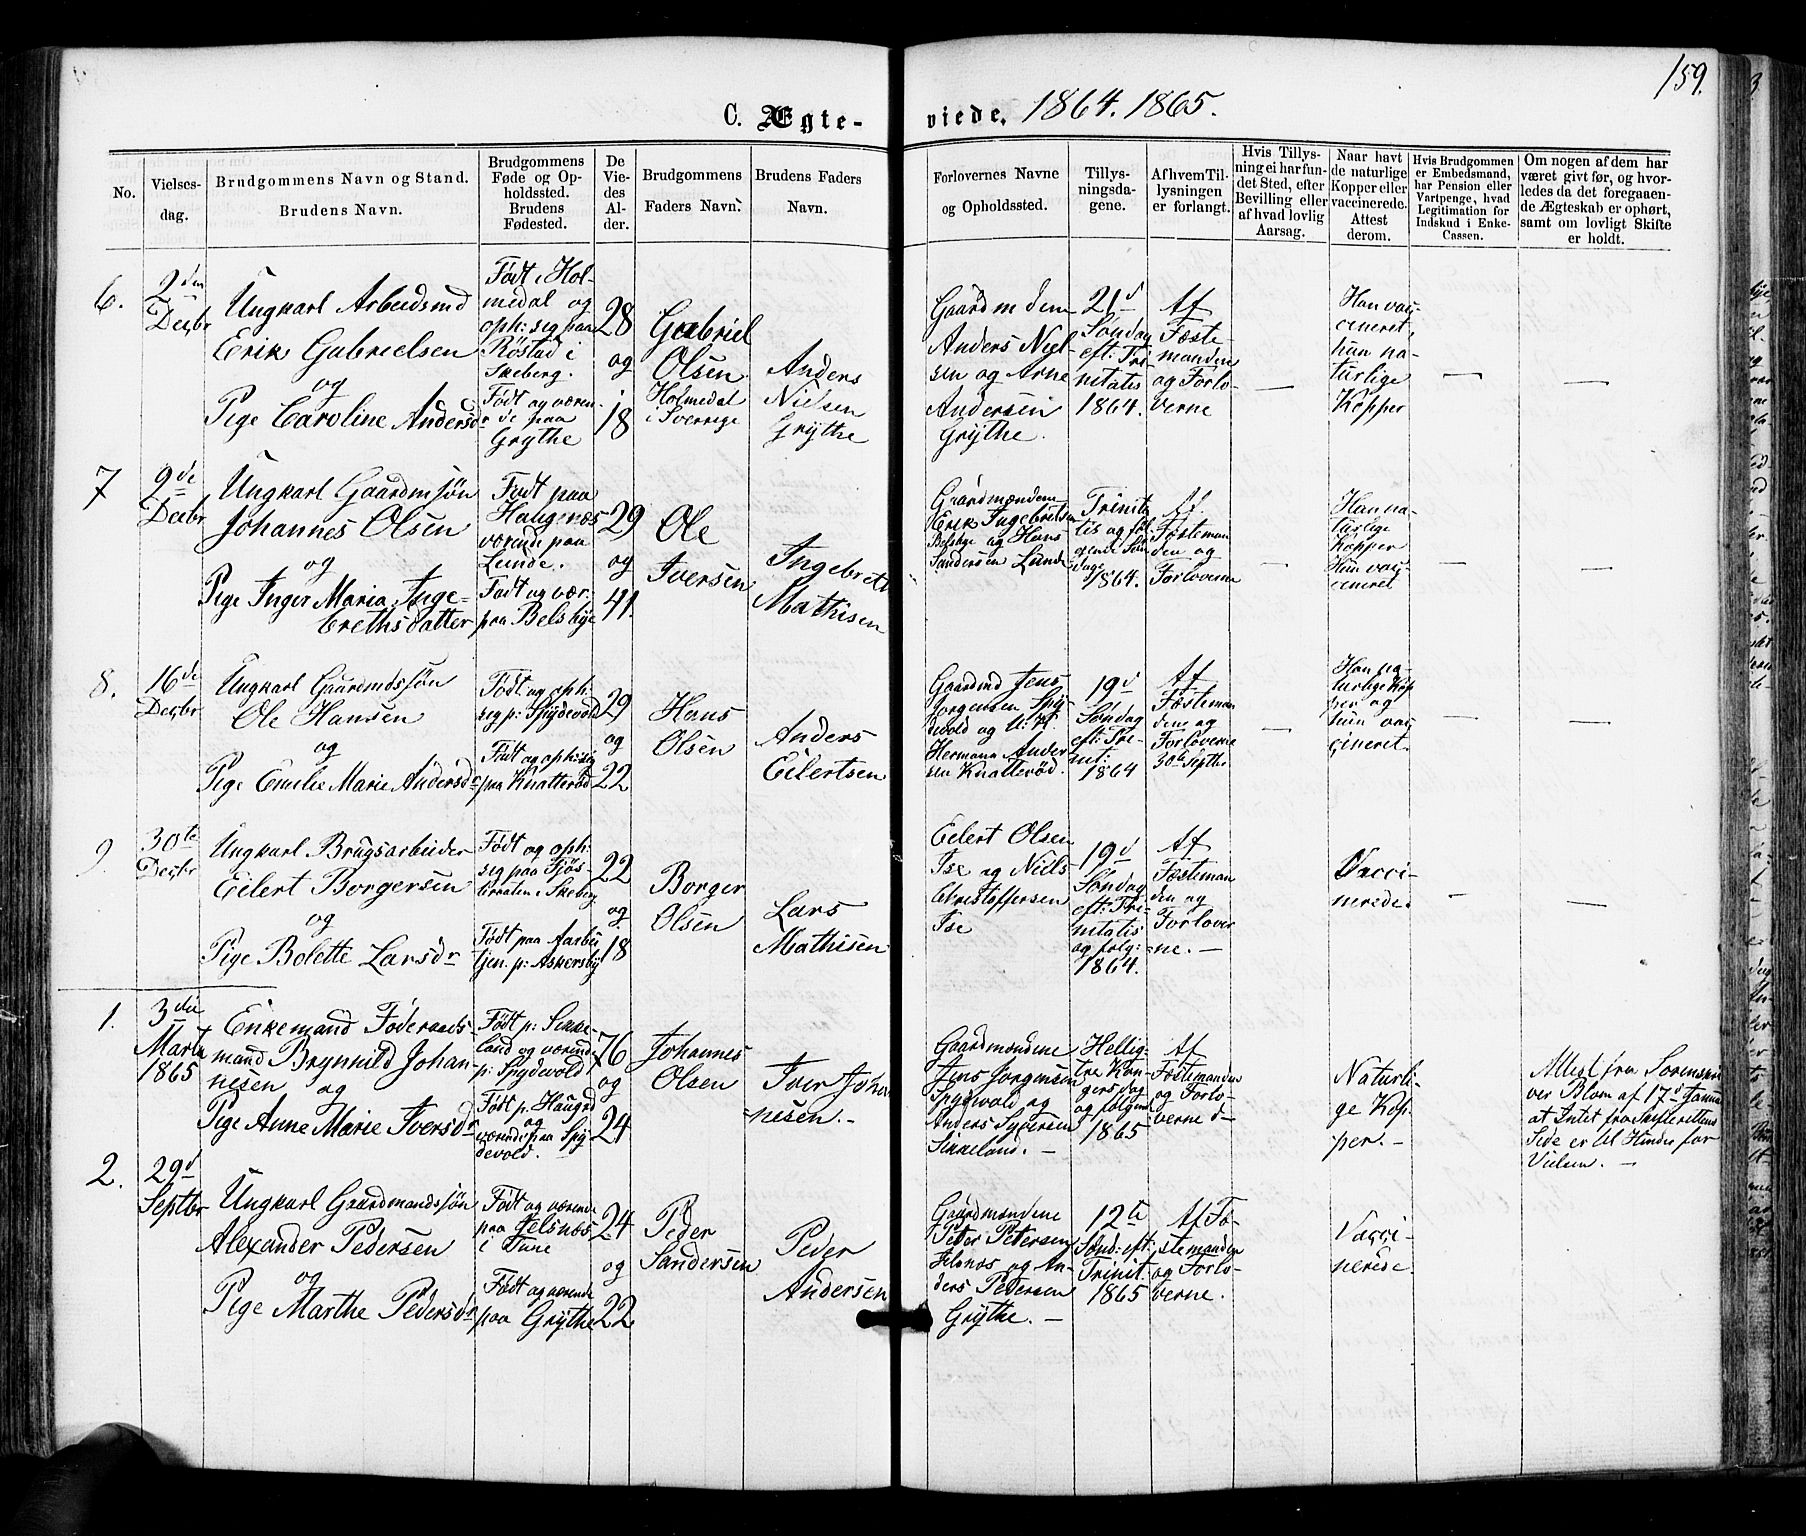 159.
C. Ægte-viede. 1864. 1865.
No.
Vielses-
dag.
Brudgommens Navn og Stand.
Brudens Navn.
Brudgommens
Føde og Op-
holdssted.
Brudens
Fødested.
De
Vie-
des
Al-
der.
Brudgommens
Faders Navn.
Brudens Faders
Navn.
Forlovernes Navne
og Opholdssted.
Tillys-
ningsda-
gene.
Af hvem Til-
lysningen
er forlangt.
Hvis Tillys-
ning ei har fun-
det Sted, efter
Bevilling eller
af hvad lovlig
Aarsag.
Naar havt
de naturlige
Kopper eller
vaccinerede.
Attest
derom.
Hvis Brudgommen
er Embedsmand,
har Pension eller
Vartpenge, hvad
Legitimation for
Indskud i Enke-
Cassen.
Om nogen af dem har
været givt før, og hvor-
ledes da det foregaaen-
de Ægteskab er ophørt,
samt om lovligt Skifte
er holdt.
6.
2den
Decbr
Ungkarl Arbeidsmd
Erik Gabrielsen
og
Pige Caroline Andersdr
Født i Hol-
medal og
oph: sig paa
Röstad i
Skeberg.
Født og væren-
de paa
Grythe
28
og
18
Gabriel
Olsen
Holmedal
i Sverrige
Anders
Nielsen
Grythe
Gaardmdene
Anders Niel-
sen og Arne
Andersen
Grythe.
21d
Søndag
eft: Tri-
nitatis
1864.
Af
Fæste-
manden
og Forlo-
verne
—
Han vac-
cineret,
hun na-
turlige
Kopper
—
—
7
9de
Decbr
Ungkarl Gaardmsøn
Johannes Olsen
og
Pige Inger Maria Inge-
brethsdatter
Født paa
Haugenæs
værende paa
Lunde.
Født og vær:
paa Belsbye
29
og
41.
Ole
Iversen
Ingebret
Mathisen
Gaardmændene
Erik Ingebretsen
Belsbye og Hans
Sandersen Lunde
Trinita
tis og føl
gende Søn
dage
1864.
Af
Fæsteman
den og
Forloverne
—
Han na-
turlige
Kopper
Hun vac-
cineret
—
—
8.
16de
Decbr
Ungkarl Gaardmdssøn
Ole Hansen
og
Pige Emilie Marie Andersdr
Født og oph:
sig p: Spydevold
Født og oph: sig
paa Knatterød
29
og
22
Hans
Olsen
Anders
Eilertsen
Gaardmd Jens
Jorgensen Spy
devold og
Hermana Ander
sen Knatterød.
19d
Søndag
eft: Tri-
nit:
1864
Af
Fæsteman
dene og
Forloverne
30te Septbr
—
Han na-
turlige Kop
per og
hun vac-
cineret.
—
—
9.
30te
Decbr
Ungkarl Brugsarbeider
Eilert Borgersen
og
Pige Bolette Larsdr
Født og oph:
sig paa Fjøs-
braaten i Skeberg
Født paa Aarbu
tjen. p: Askersby
22
og
18
Borger
Olsen
Lars
Mathisen
Eilert Olsen
Ise og Niels
Christoffersen
Ise
19d
Søndag
eft: Tri-
nitatis
og følg:
1864.
Af
Fæsteman
den og
Forlover
ne. —
Vacci-
nerede.
—
—
1.
3die
Marts
1865
Enkemand Føderaads-
mand Brynnild Johan-
nesen og
Pige Anne Marie Iversdr
Født p: Sikke-
land og værende
p: Spydevold
Født p. Haugsd
og
værende paa Spy
devold.
76
og
24
Johannes
Olsen
Iver Johan
nesen. —
Gaardmændene
Jens Jorgensen
Spydevold og
Anders Syversen
Sikkeland. —
Hellig-
tre Kon
gersdag
og følgende
1865
Af
Fæstemanden
og Forlo-
verne d—
Naturli-
ge Kop-
per. —
Attest fra Sorenskri
ver Blom af 17d Janua
at Intet fra Skifterettens
Side er til Hinder for
Vielsen. —
2.
29d
Septbr
Ungkarl Gaardmandssøn
Alexander Pedersen
og
Pige Marthe Pedersdr
Født og værende
paa Jelsnæs
i Tune
Født og værende
paa Grythe
24
og
22
Peder
Sandersen
Peder
Andersen
Gaardmændene
Peter Petersen
Jelsnæs og An-
ders Pedersen
Grythe. —
12te
Sønd: eft:
Trinit.
1865
Af Fæ-
stemanden
og Forlo-
verne.
Vacci-
nerede.